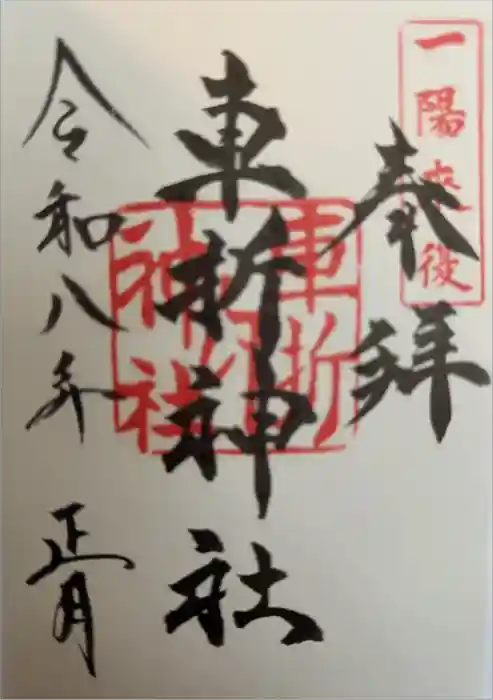 一陽来復
奉拝
車折神社
車折
神社
令和八年
正月